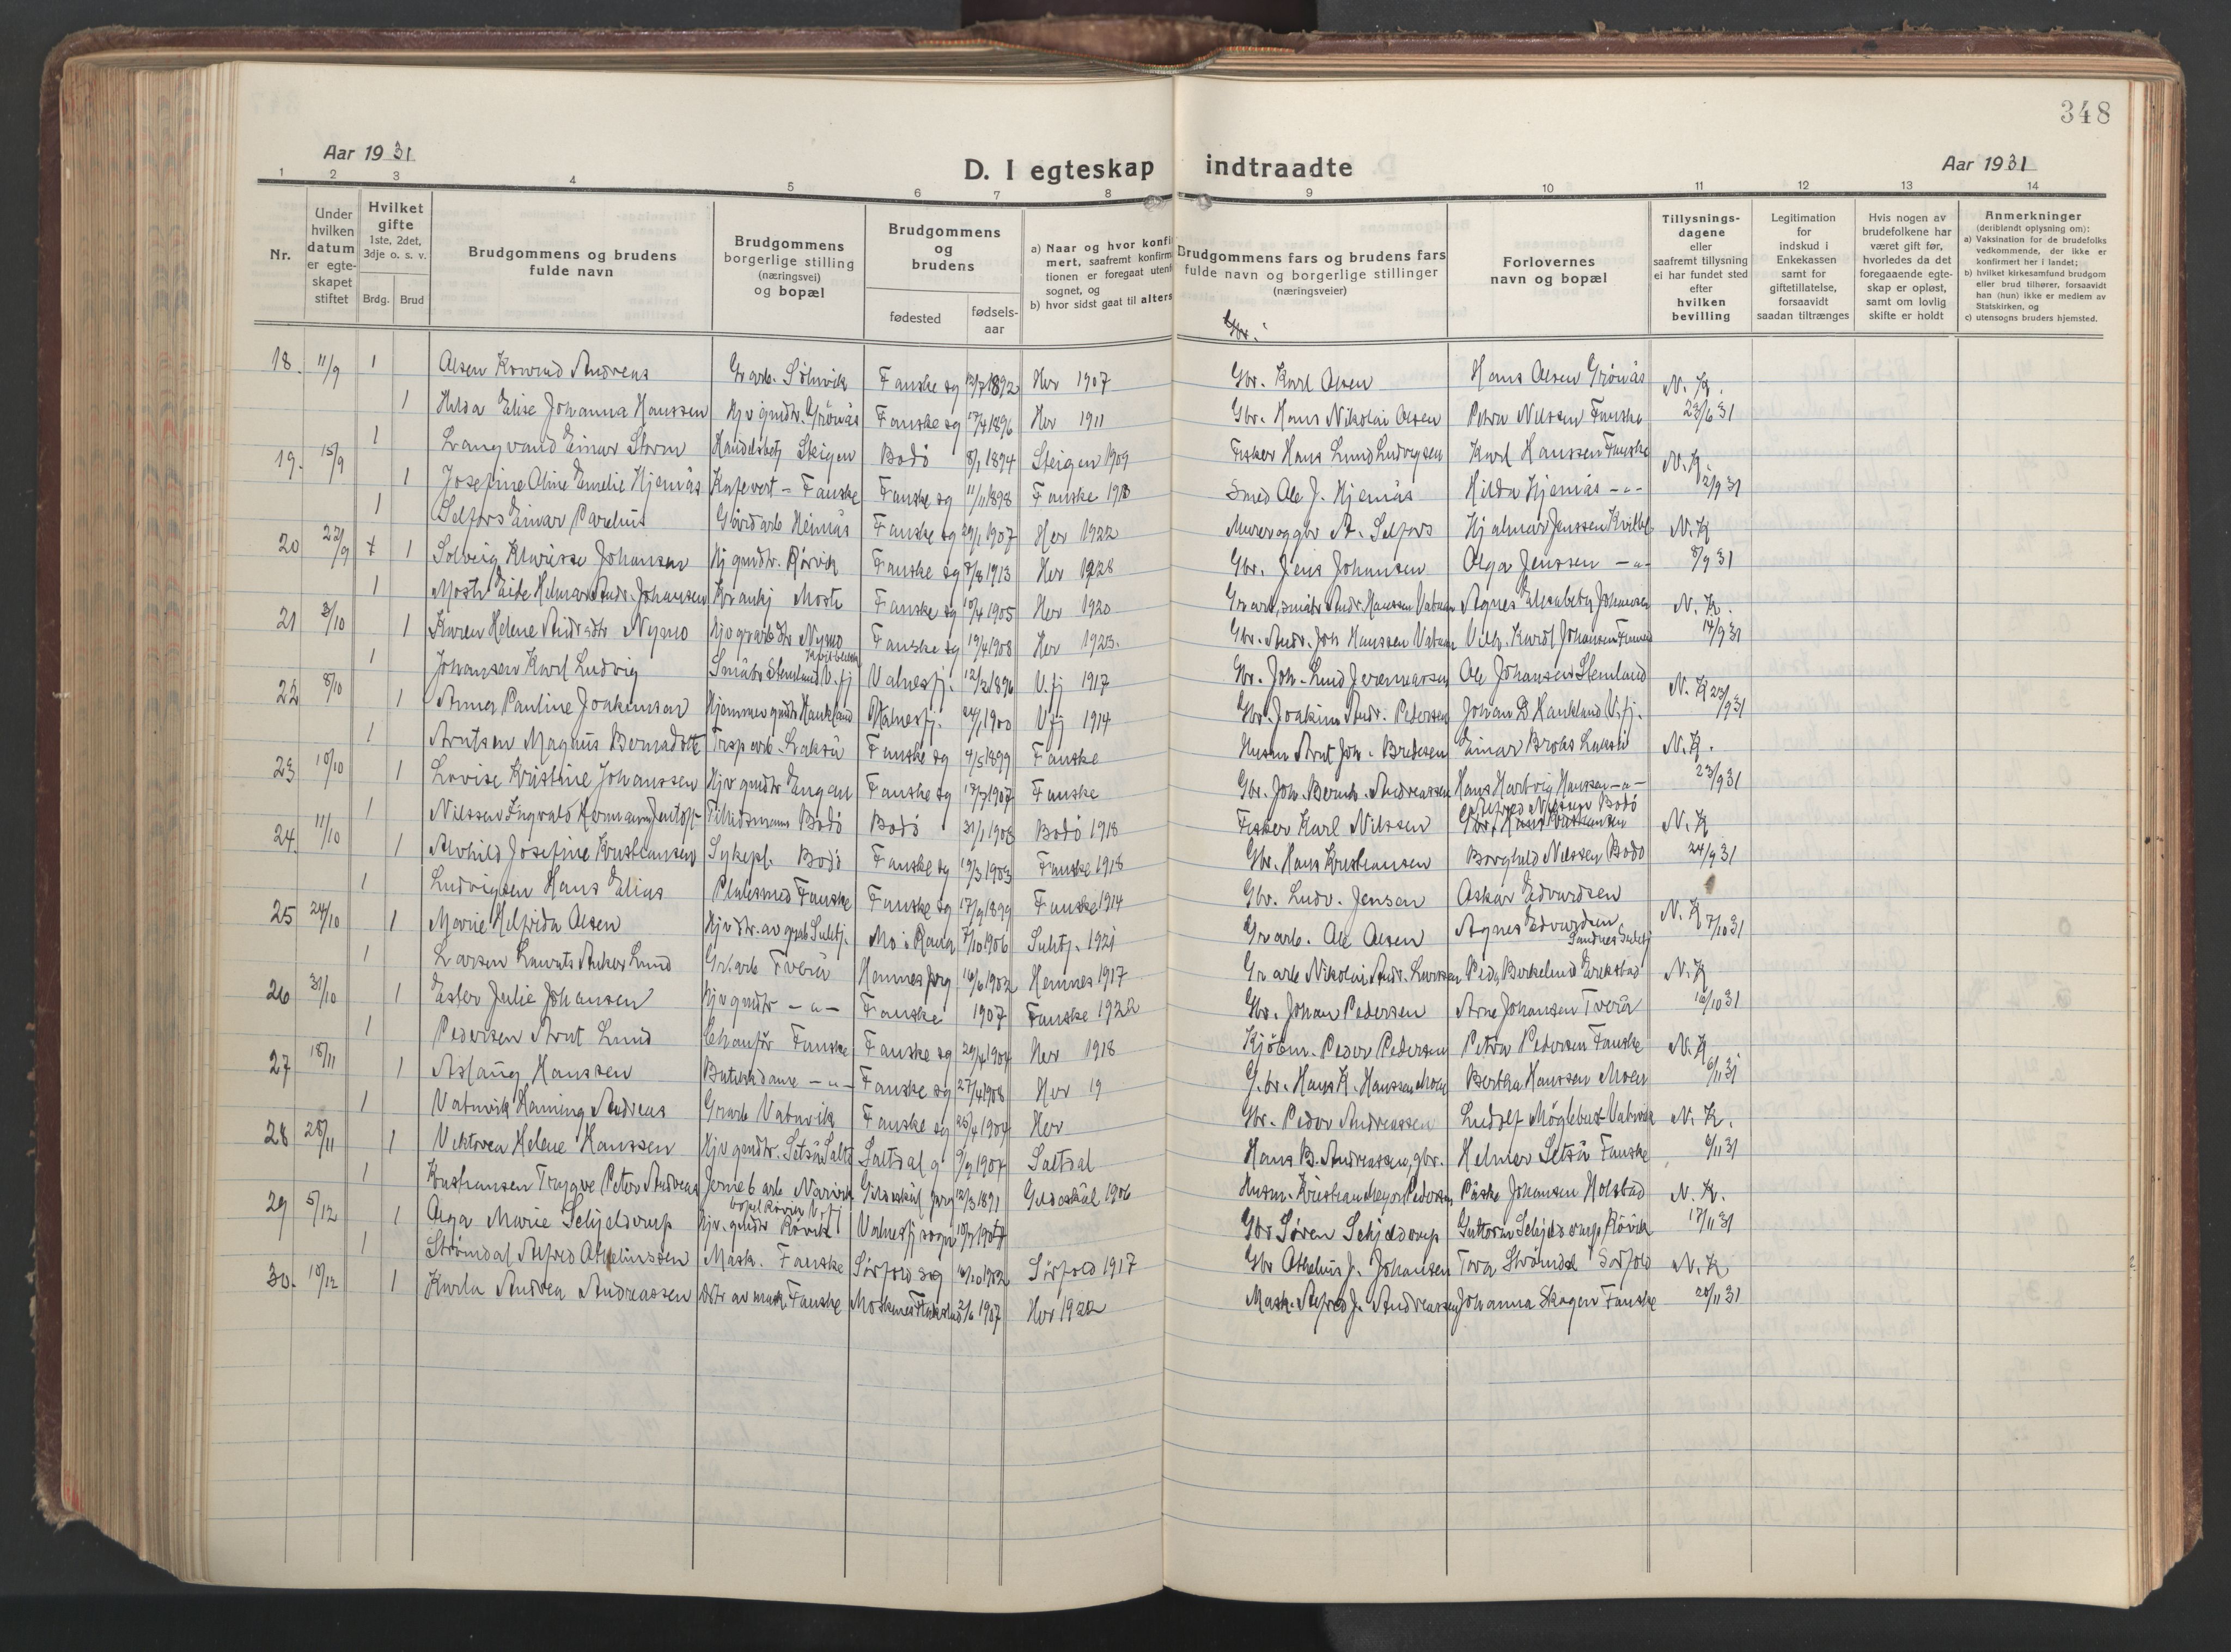 348
Aar 1931
D. I egteskap indtraadte
Aar 1931
1 2 3 4 5 6 7 8 9 10 11 12 13 14
Nr.
Under hvilken datum er egteskapet stiftet
Hvilket gifte 1ste, 2det, 3dje o. s. v.
Brdg. Brud
Brudgommens og brudens fulde navn
Brudgommens borgerlige stilling (næringsvei) og bopæl
Brudgommens og brudens
fødested
fødselsaar
a) Naar og hvor konfirmert, saafremt konfirmtionen er foregaat utenf sognet, og
b) hvor sidst gaat til alters
Brudgommens fars og brudens fars fulde navn og borgerlige stillinger (næringsveier)
Forlovernes navn og bopæl
Tillysningsdagene eller saafremt tillysning ei har fundet sted efter hvilken bevilling
Legitimation for indskud i Enkekassen samt for giftetillatelse, forsaavidt saadan tiltrænges
Hvis nogen av brudefolkene har været gift før, hvorledes da det foregaaende egteskap er opløst, samt om lovlig skifte er holdt
Anmerkninger (deriblendt oplysning om):
a) Vaksination for de brudefolks vedkommende, der ikke er konfirmert her i landet;
b) hvilket kirkesamfund brudgom eller brud tilhører, forsaavidt han (hun) ikke er medlem av Statskirken, og
c) utensogns bruders hjemsted.
Gbr.
18. 11/9 1 Olsen Konrad Andreas Grarb. Sølvvik Fauske sg 13/7 1892 Her 1907 Gbr. Karl Olsen Hans Olsen Grönås N. K.
1 Hilda Elise Johanna Hanssen Hjv gmdtr. Grönås Fauske sg 17/4 1896 Her 1911 Gbr. Hans Nikolai Olsen Petra Nilssen Fauske 23/6 31
19. 15/9 1 Langvand Einar Storm Handelsbetj Steigen Bodö 8/1 1894 Steigen 1909 Fisker Hans Lund Ludvigsen Karl Hanssen Fauske N. K.
1 Josefine Oline Emelie Hjemås Kafevert - Fauske Fauske sg 11/11 1898 Fauske 1913 Smed Ole J. Hjemås Hilda Hjemås -"- 2/9 31
20 22/9 1 Selfors Einar Parelius Gårdarb Heimås Fauske sg 29/1 1907 Her 1922 Murer og gbr A. Selfors Hjalmar Jenssen N. K
1 Solveig Klarisse Johansen Hj gmdtr. Rörvik Fauske sg 8/8 1913 Her 1928 Gbr. Jens Johansen Olga Jenssen -"- 8/9 31
21 3/10 1 Helmar Andr. Johansen Fauske sg 10/4 1905 Her 1920 Andr. Hanssen Agnes Elisabeth Johansen N. K.
1 Karen Helene Andrsdtr Nymo Nymo Fauske sg 19/4 1908 Her 1923. Gbr. Andr. Joh Hanssen 14/9 31
22 8/10 1 Johansen Karl Ludvig Småbr Stemland V.fj Valnesfj. 12/2 1896 V. fj 1917 Gbr. Joh. Lund Jeremiassen Ole Johansen Stemland N. K 23/9 31
1 Anna Pauline Joakimsen Hjemmev gmdtr Haukland Valnesfj. 24/1 1900 V fj 1914 Gbr. Joakim Andr. Pedersen Johan D Haukland V. fj.
23 10/10 1 Arntsen Magnus Bernadotte Trsp arb. Lakså Fauske sg 4/5 1899 Fauske Husm Arnt Joh. Bredesen Einar Brobs N. K.
1 Lovise Kristine Johanssen Hjv gmdtr Engan Fauske sg 17/7 1907 Fauske Gbr. Joh. Bernh. Andreassen Hans Hartvig Hanssen -"- 23/9 31
24. 11/10 1 Nilssen Ingvald Hermann Jentoft Tillidsmann Bodö Bodö 31/1 1903 Bodö 1918 Fisker Karl Nilssen Alfred Nilssen Bodö N. K
1 Alvhild Josefine Kristiansen Sykepl. Bodö Fauske sg 19/3 1903 Fauske 1918 Gbr. Hans Kristiansen Borghild Nilssen Bodö 24/9 31
25 24/10 1 Ludvigsen Hans Elias Platesmed Fauske Fauske sg 17/9 1899 Fauske 1914 Gbr. Ludv. Jensen Oskar Edvardsen N. K 7/10 31
1 Marie Helfrida Olsen Hjv dtr. av grarb Sulitj. Mo i Rana 7/10 1906 Sulitj. 1921 Grarb. Ole Olsen Agnes Edvardsen Sandnes Sulitj
26 31/10 1 Larsen Laurits Anker Lund Grb arb Tverå Hemnes prg 16/6 1902 Hemnes 1917 Grarb Nikolai Andr. Larssen N. K
1 Ester Julie Johansen Hjv gmdtr -"- Fauske 1907 Fauske 1922 Gbr. Johan Pedersen Arne Johansen Tverå 16/10 31
27 18/11 1 Pedersen Arnt Lund Chaufför Fauske Fauske sg 29/4 1904 Her 1918 Kjöbm. Peder Pedersen Petra Pedersen Fauske N. K
1 Aslaug Hanssen Butikkdame -"- Fauske sg 27/4 1908 Her 19 G. br. Hans K. Hanssen Moen Bertha Hanssen Moen 6/11 31
28 28/11 1 Vatnvik Haming Andreas Grarb Vatnvik Fauske sg 25/4 1904 Her Gbr. Peder Andreassen Ludolf Möglebust Vatnvik N. K.
1 Viktoria Helene Hanssen Hjv gmdtr. Setså Saltd Saltdal g 9/9 1907 Saltdal Hans B. Andreassen, gbr. Helmer Setså Fauske 6/11 31
29 5/12 1 Kristiansen Trygve Peter Andreas Jerneb arb Narvik bopel Rövik V. fj Gildeskål prg 12/3 1891 Gildeskål 1906 Husm. Kristian Meyer Pedersen Påske Johansen Holstad N. K.
1 Olga Marie Schjeldrup Hjv. gmdtr Rövik Valnesfj sogn 10/9 1907 Gbr Søren Schjeldrup Guttorm Schjeldrup Rövik 17/11 31
30. 10/12 1 Strömdal Alfred Athelinssen Mask. Fauske Sörfold sg 10/10 1902 Sörfold 1917 Gbr Athelius J. Johansen Tora Strömdal Sörfold N. K.
1 Karla Andrea Andreassen Dtr av mask. Fauske 2/6 1907 Her 1922 Mask. Alfred J. Andreassen Johanna Skogen Fauske 20/11 31